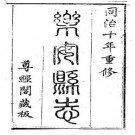 同治十年重修
樂安縣志
尊經閣藏板